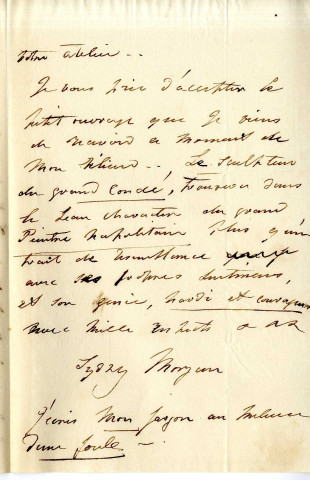 votre atelier --
Je vous prie d'accepter le
petit ouvrage que Je viens
de a moment de
Mon -- Le Sculpteur
du grand Condé, trouvera dans
le beau character du grand
Peintre napolitain Plus qu'un
trait de
avec ses propres
et son genie, hardi et courageux
avec mille
Sydney Morgan
J'écris Mon jargon au milieu
d'une foule -